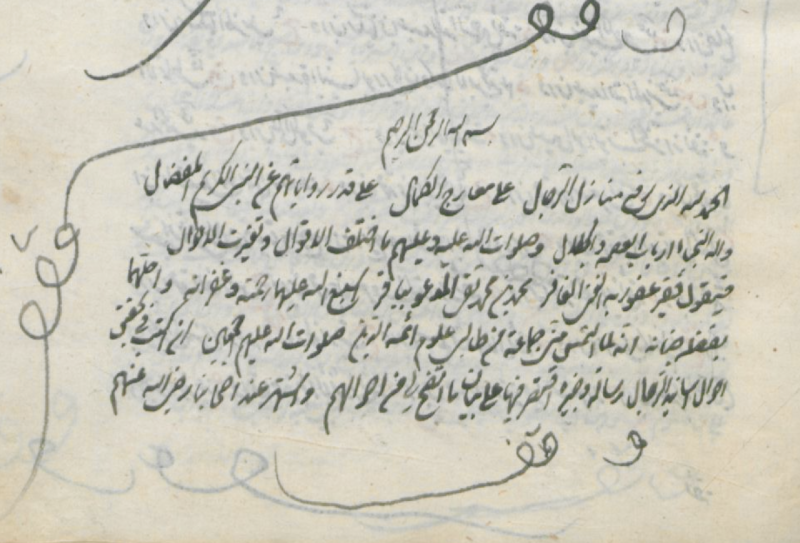 بسم الله الرحمن الرحيم
الحمد لله الذي رفع منازل الرجال على معارج الكمال على قدر رواياتهم عن النبي الكريم المفضال
واله النجباء ارباب العصمة والجلال وصلوات الله عليه وعليهم ما اختلف الاقوال وتغيرت الاحوال
فيقول فقير عفو ربه الغافر محمد بن محمد تقي المدعو بباقر اسبغ الله عليهما رحمته وغفرانه
بفضله انه لما التمس مني جماعة من طالبي علوم ائمة الدين صلوات الله عليهم اجمعين ان اكتب في تحقيق
احوال اسانيد الرجال رسالة وجيزة اقتصر فيها على بيان ما اتضح لي من احوالهم واشتهر عند اصحابنا رضي الله عنهم